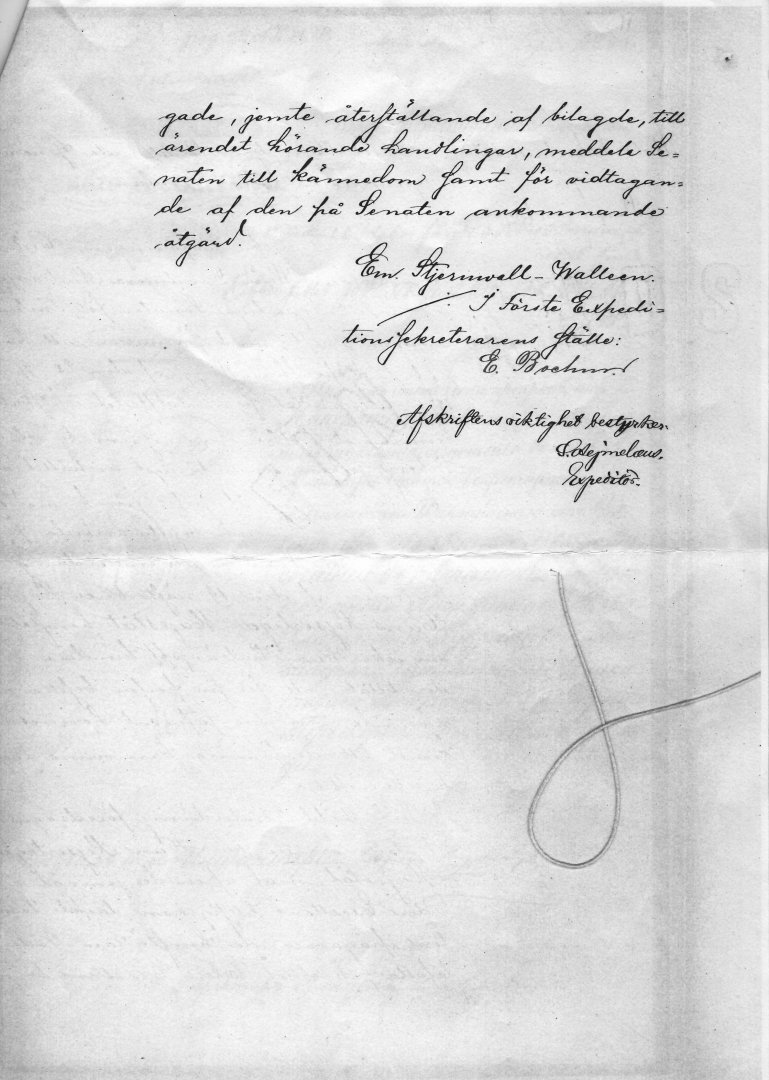 gade, jemte återställande af bilagde, till
ärendet hörande handlingar, meddela Se=
naten till kännedom samt för vidtagan=
de af den på Senaten ankommande
åtgärd.
Em. Stjernvall-Walleen.
I Förste Expedi=
tionssekreterarens ställe:
E. Boehm
Afskriftens riktighet bestyrker.
Expeditör.